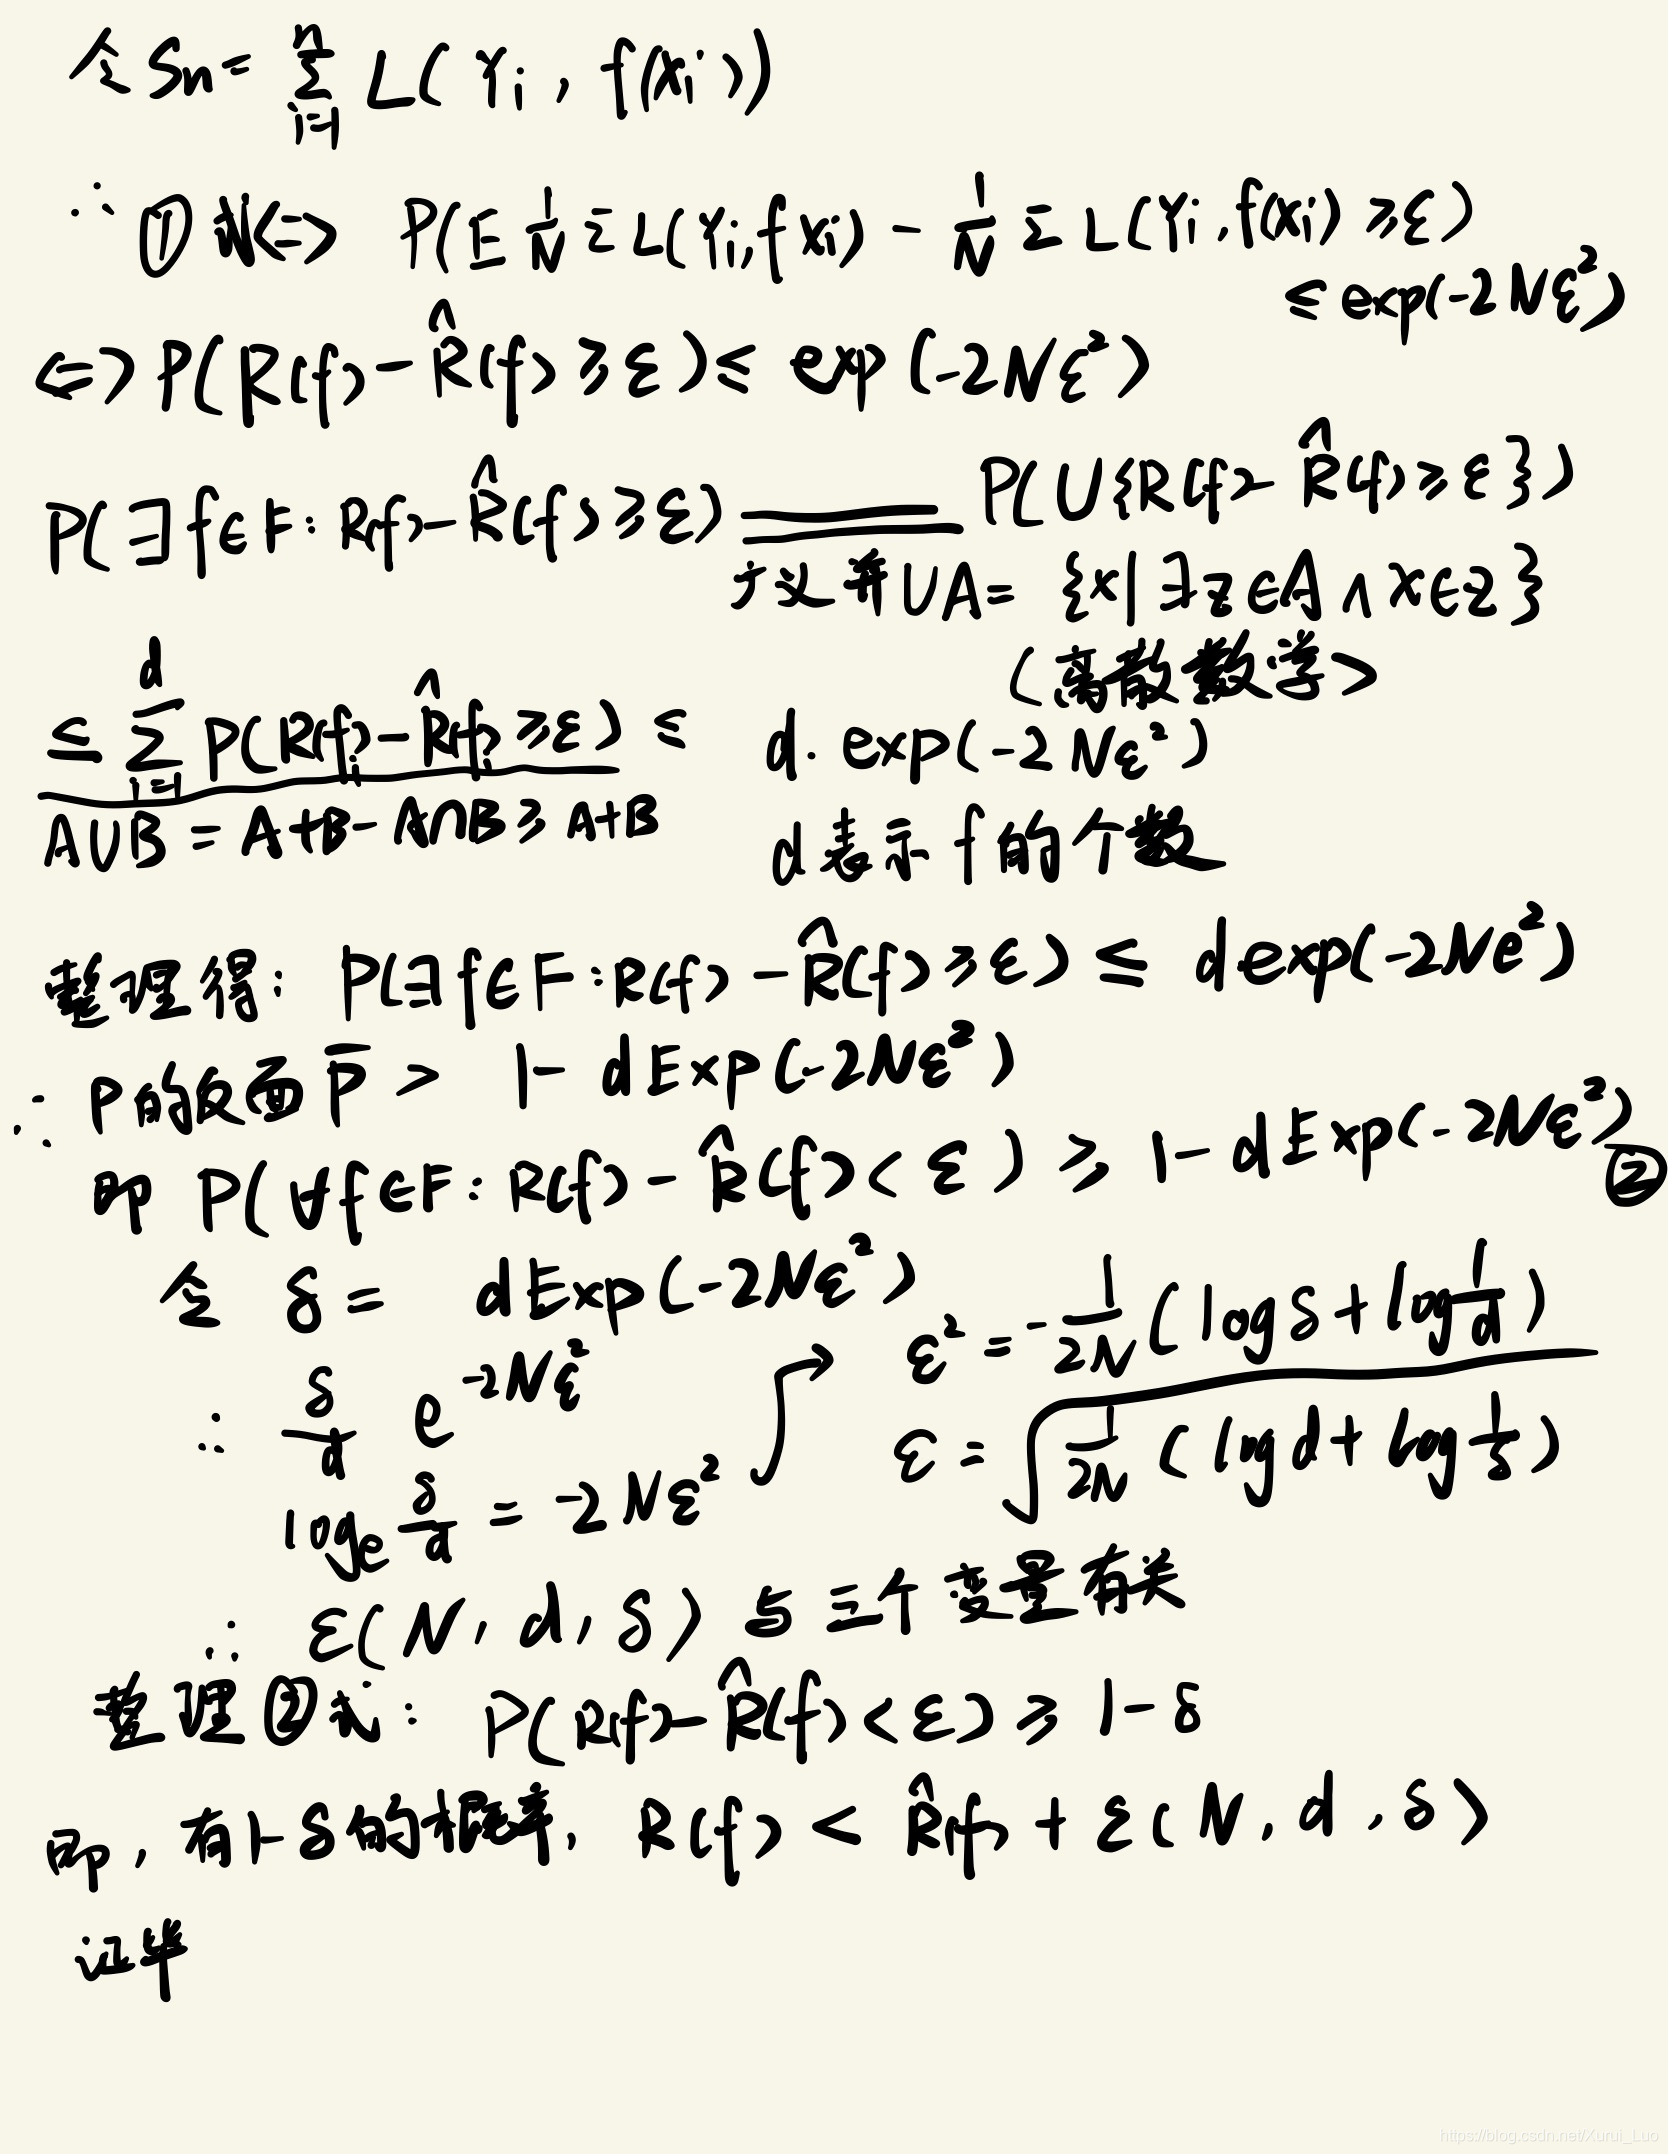 令 Sn = n∑i=1 L(Yi, f(xi))
∴ ①式<=> P(E 1/N ∑ L(Yi, f xi) - 1/N ∑ L(Yi, f(xi) ≥ε)
≤ exp(-2Nε²)
<=> P(R(f) - R̂(f) ≥ε) ≤ exp(-2Nε²)
P(∃f∈F: R(f) - R̂(f) ≥ε) ══ P(U{R(f) - R̂(f) ≥ε})
广义并 UA = {x|∃z∈A ∧ x∈z}
(离散数学)
≤ d∑i=1 P(R(fi) - R̂(fi) ≥ε) ≤ d·exp(-2Nε²)
AUB = A+B - A∩B ≥ A+B
d表示f的个数
整理得: P(∃f∈F: R(f) - R̂(f) ≥ε) ≤ d exp(-2Ne²)
∴ P的反面 P̄ > 1 - d Exp(-2Nε²)
即 P(∀f∈F: R(f) - R̂(f) < ε) ≥ 1 - d Exp(-2Nε²) ②
令 δ = d Exp(-2Nε²)
∴ δ/d e^-2Nε²
logₑ δ/d = -2Nε²
ε² = -1/2N (log δ + log 1/d)
ε = √(1/2N (log d + log 1/δ))
∴ ε(N, d, δ) 与三个变量有关
整理②式: P(R(f) - R̂(f) < ε) ≥ 1-δ
即, 有1-δ的概率, R(f) < R̂(f) + ε(N, d, δ)
证毕
https://blog.csdn.net/Xurui_Luo